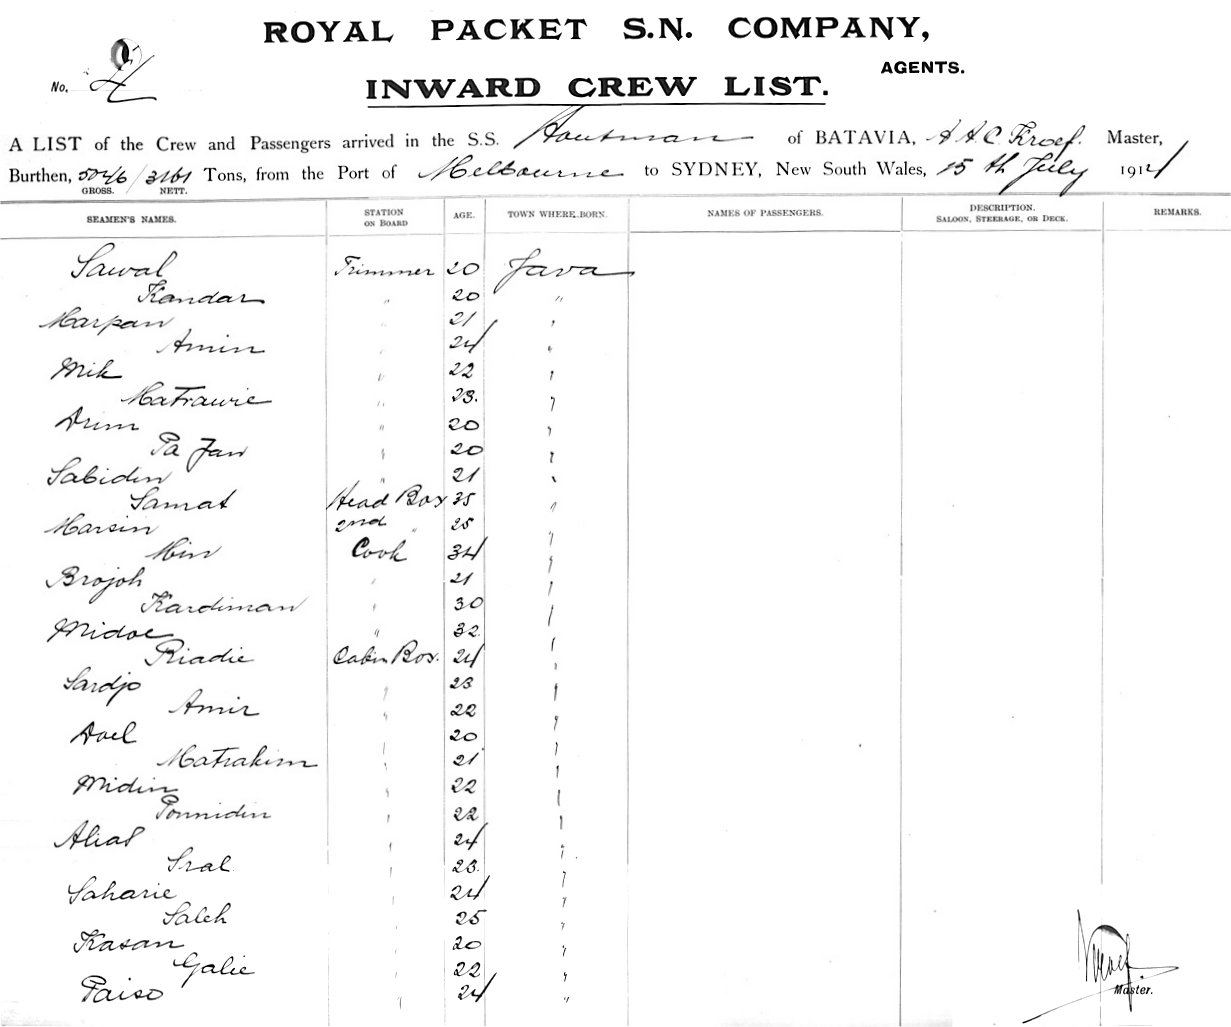 ROYAL PACKET S.N. COMPANY,
AGENTS.
No. 4
INWARD CREW LIST.
A LIST of the Crew and Passengers arrived in the S.S. Houtman of BATAVIA, A A.C. Kroef. Master,
Burthen, 5046/3161 Tons, from the Port of Melbourne to SYDNEY, New South Wales, 15th July 1914
GROSS. NETT.
SEAMEN'S NAMES. STATION ON BOARD AGE. TOWN WHERE BORN. NAMES OF PASSENGERS. DESCRIPTION. SALOON, STEERAGE, OR DECK. REMARKS.
Sawal Trimmer 20 Java
Kandar " 20 "
Marpan " 21 "
Amin " 24 "
Mik " 22 "
Matrawie " 23. "
Drim " 20 "
Pa Jan " 20 "
Sabidin " 21 "
Samat Head Boy 35 "
Marsin 2nd " 25 "
Min Cook 34 "
Brojoh " 21 "
Kardiman " 30 "
Midoe " 32 "
Riadie Cabin Boy. 24 "
Sardjo " 23 "
Amir " 22 "
Doel " 20 "
Matrakim " 21 "
Midin " 22 "
Ponnidin " 22 "
Alias " 24 "
Sral " 23. "
Saharie " 24 "
Saleh " 25 "
Kasan " 20 "
Galie " 22 "
Paiso " 24 "
Kroef
Master.